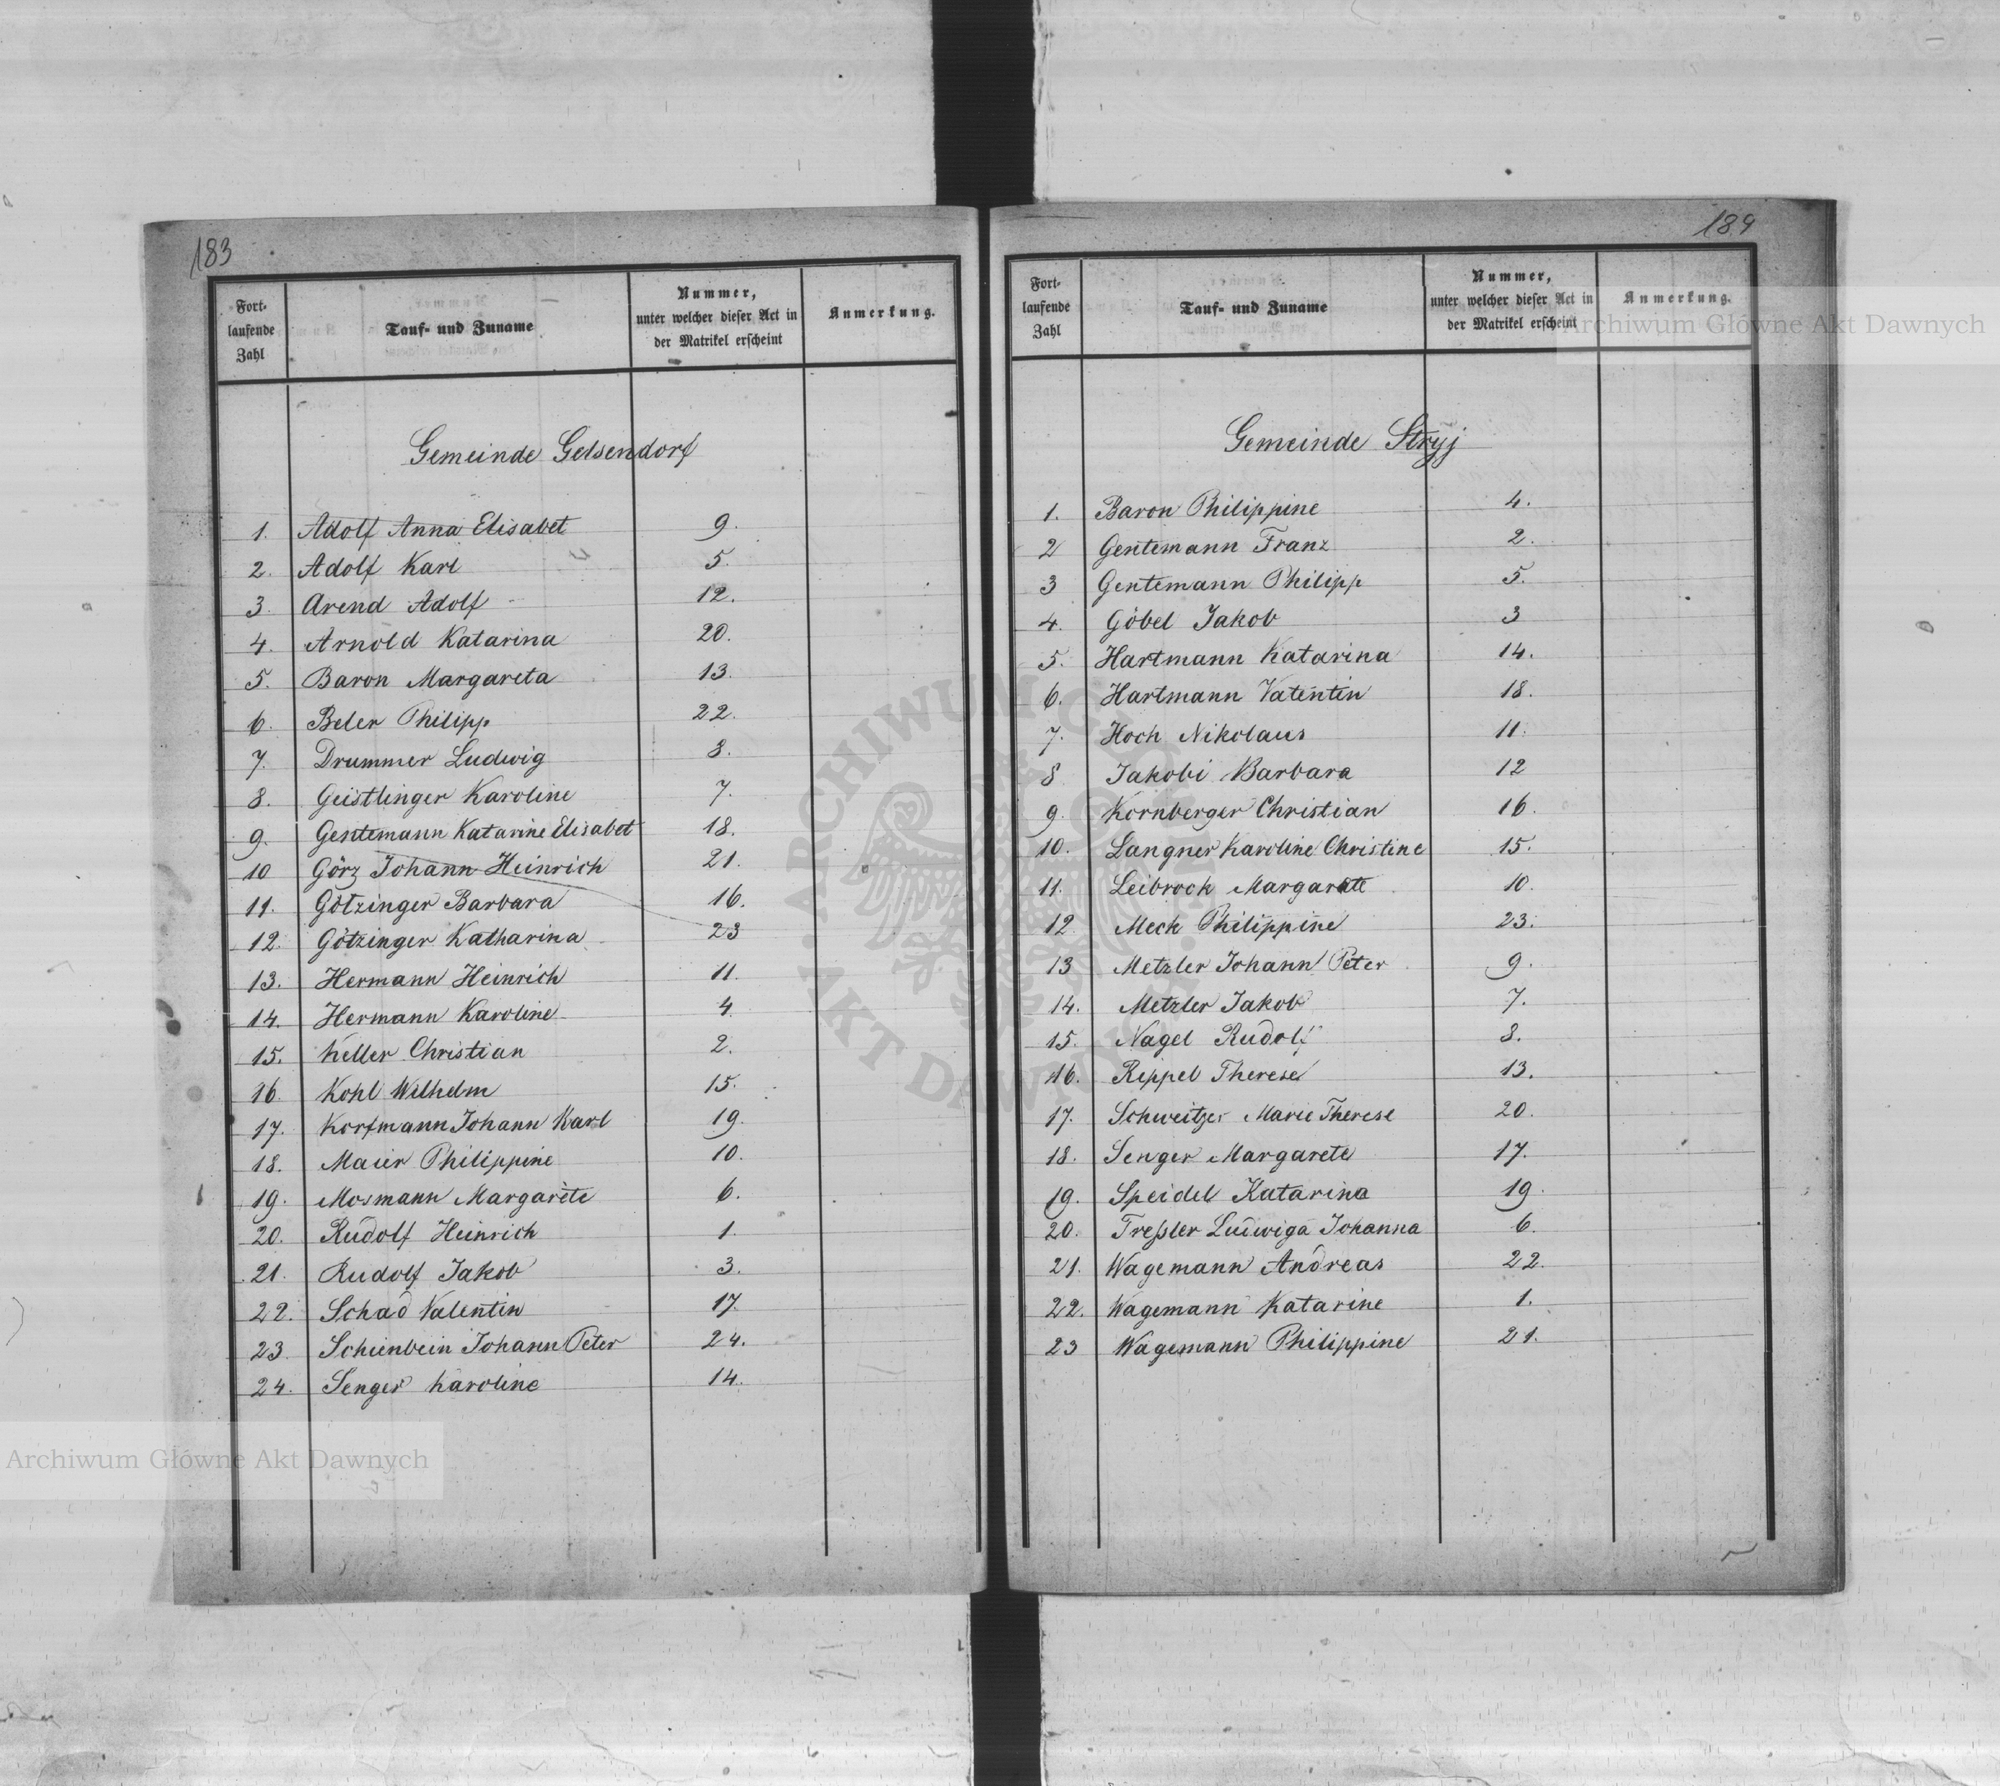 183
Fort-
laufende
Zahl
Tauf- und Zuname
Nummer,
unter welcher dieser Act in
der Matrikel erscheint
Anmerkung.
Gemeinde Gelsendorf
1. Adolf Anna Elisabet 9.
2. Adolf Karl 5.
3. Arend Adolf 12.
4. Arnold Katarina 20.
5. Baron Margareta 13.
6. Beler Philipp 22.
7. Drummer Ludwig 8.
8. Geistlinger Karoline 7.
9. Gentemann Katarine Elisabet 18.
10 Görz Johann Heinrich 21.
11. Götzinger Barbara 16.
12. Götzinger Katharina 23
13. Hermann Heinrich 11.
14. Hermann Karoline 4
15. Keller Christian 2.
16. Kohl Wilhelm 15.
17. Korfmann Johann Karl 19.
18. Maier Philippine 10.
19. Mosmann Margarete 6.
20. Rudolf Heinrich 1.
21. Rudolf Jakob 3.
22. Schad Valentin 17.
23. Schienbein Johann Peter 24.
24. Senger Karoline 14.
184
Fort-
laufende
Zahl
Tauf- und Zuname
Nummer,
unter welcher dieser Act in
der Matrikel erscheint
Anmerkung.
Gemeinde Stryj
1. Baron Philippine 4.
2 Gentemann Franz 2.
3 Gentemann Philipp 5.
4. Göbel Jakob 3
5. Hartmann Katarina 14.
6. Hartmann Valentin 18.
7. Hoch Nikolaus 11.
8 Jakobi Barbara 12
9. Kornberger Christian 16.
10. Langner Karoline Christine 15.
11. Leibrock Margarete 10.
12 Meck Philippine 23.
13 Metzler Johann Peter 9.
14. Metzler Jakob 7.
15. Nagel Rudolf 8.
16. Rippel Therese 13.
17. Schweitzer Marie Therese 20.
18. Senger Margarete 17.
19. Speidel Katarina 19.
20. Treßler Ludwiga Johanna 6.
21. Wagemann Andreas 22.
22. Wagemann Katarine 1.
23 Wagemann Philippine 21.
Archiwum Główne Akt Dawnych
Archiwum Główne Akt Dawnych